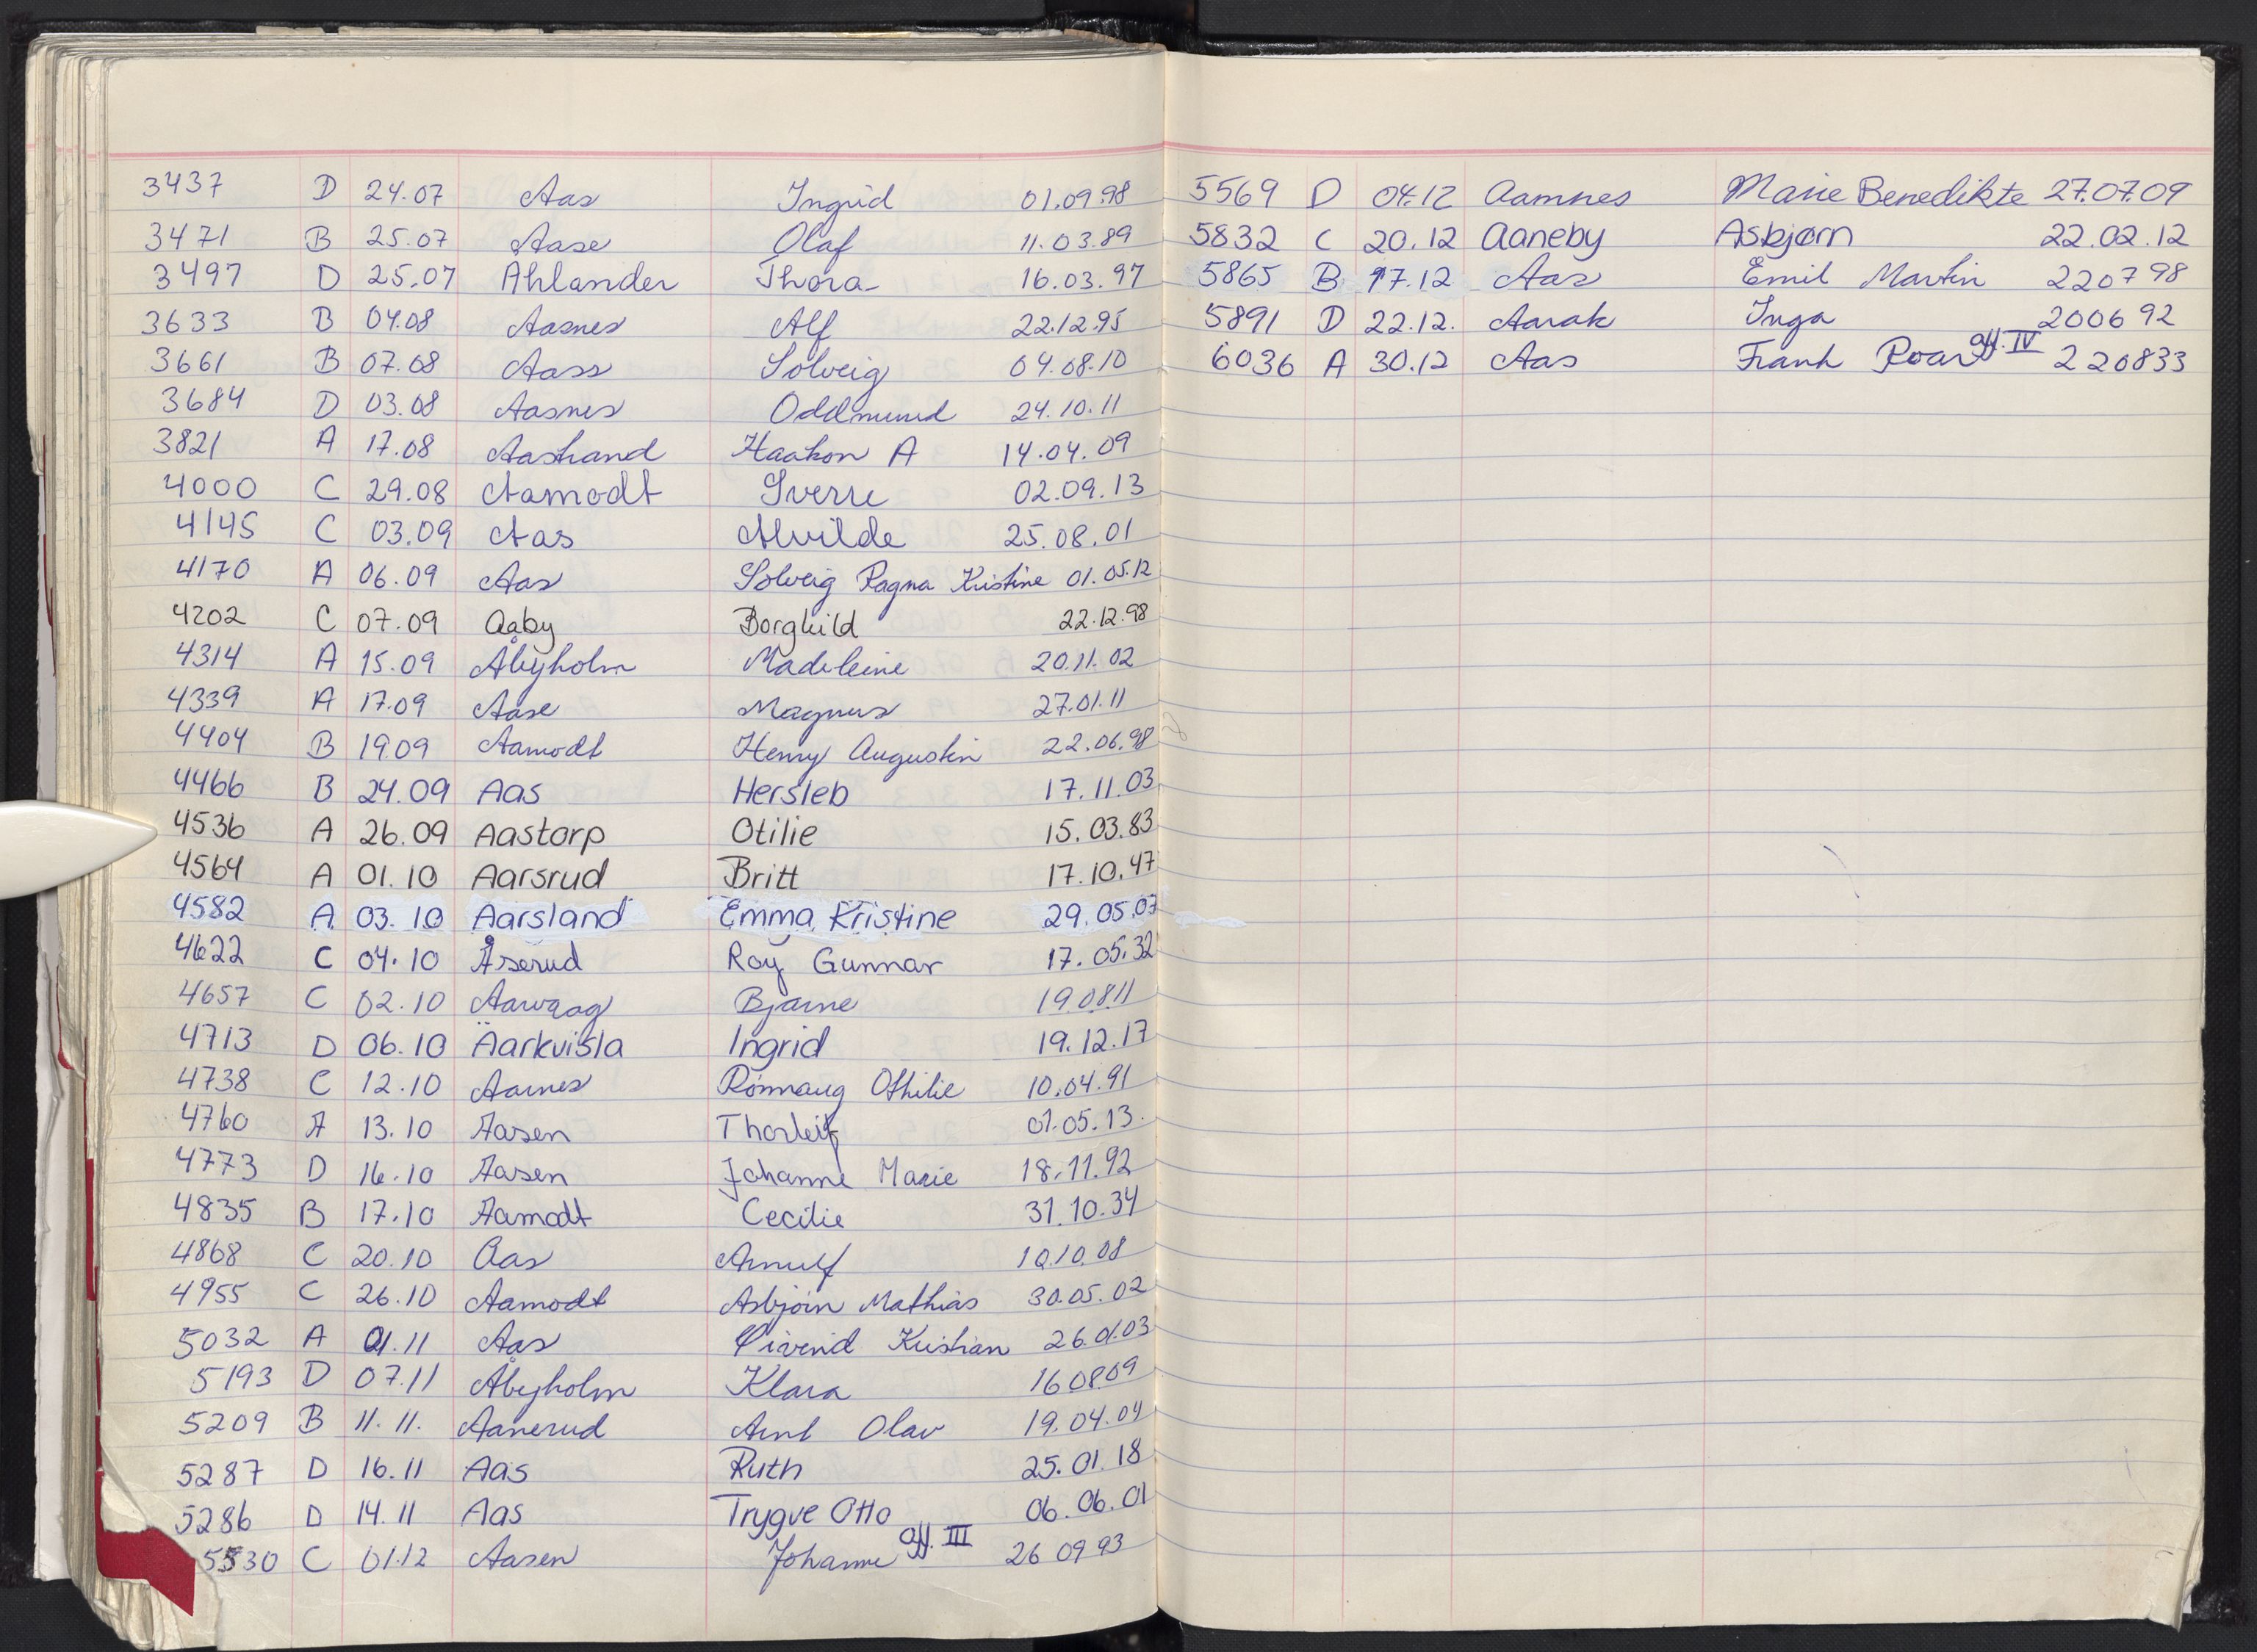 3437 D 24.07 Aas Ingrid 01.09.98
3471 B 25.07 Aase Olaf 11.03.89
3497 D 25.07 Ahlander Thora 16.03.97
3633 B 04.08 Aasnes Alf 22.12.95
3661 B 07.08 Aass Solveig 04.08.10
3684 D 03.08 Aasnes Oddmund 24.10.11
3821 A 17.08 Aastrand Haakon A 14.04.09
4000 C 29.08 Aamodt Sverre 02.09.13
4145 C 03.09 Aas Alvilde 25.08.01
4170 A 06.09 Aas Solveig Ragna Kristine 01.05.12
4202 C 07.09 Aaby Borghild 22.12.98
4314 A 15.09 Åbyholm Madeleine 20.11.02
4339 A 17.09 Aase Magnus 27.01.11
4404 B 19.09 Aamodt Henry Augustin 22.06.98
4466 B 24.09 Aas Hersleb 17.11.03
4536 A 26.09 Aastorp Otilie 15.03.83
4564 A 01.10 Aarsrud Britt 17.10.47
4582 A 03.10 Aarsland Emma Kristine 29.05.07
4622 C 04.10 Åserud Roy Gunnar 17.05.32
4657 C 02.10 Aarvaag Bjarne 19.08.11
4713 D 06.10 Äarkvisla Ingrid 19.12.17
4738 C 12.10 Aarnes Rønnaug Othilie 10.04.91
4760 A 13.10 Aasen Thorleif 01.05.13.
4773 D 16.10 Aasen Johanne Marie 18.11.92
4835 B 17.10 Aamodt Cecilie 31.10.34
4868 C 20.10 Aas Arnulf 10.10.08
4955 C 26.10 Aamodt Asbjørn Mathias 30.05.02
5032 A 01.11 Aas Eivind Kristian 26.01.03
5193 D 07.11 Åbyholm Klara 160809
5209 B 11.11. Aanerud Arnt Olav 19.04.04
5287 D 16.11 Aas Ruth 25.01.18
5286 D 14.11 Aas Trygve Otto 06.06.01
5530 C 01.12 Aasen Johanne avd. III 26 09 93
5569 D 04.12 Aamnes Marie Benedikte 27.07.09
5832 C 20.12 Aaneby Asbjørn 22.02.12
5865 B 17.12 Aas Emil Martin 220798
5891 D 22.12. Aarak Inga 200692
6036 A 30.12 Aas Frank Roar avd. IV 220833